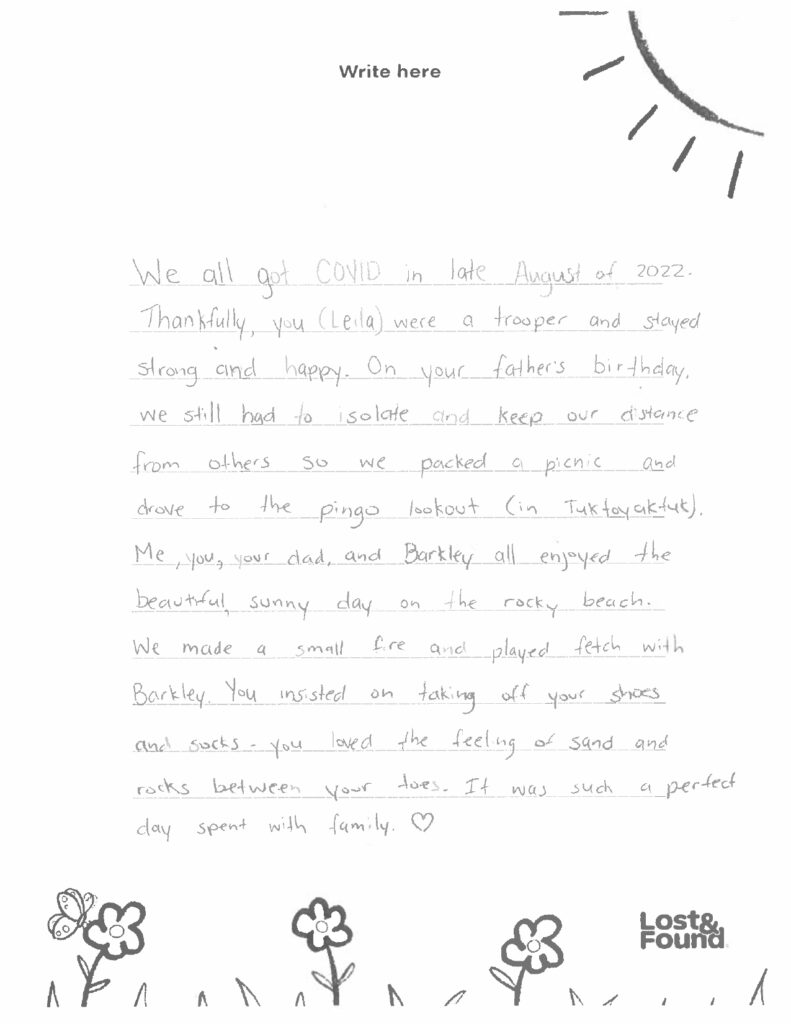 Write here
We all got COVID in late August of 2022.
Thankfully, you (Leila) were a trooper and stayed
strong and happy. On your father's birthday,
we still had to isolate and keep our distance
from others so we packed a picnic and
drove to the pingo lookout (in Tuktoyaktuk).
Me, you, your dad, and Barkley all enjoyed the
beautiful, sunny day on the rocky beach.
We made a small fire and played fetch with
Barkley. You insisted on taking off your shoes
and socks - you loved the feeling of sand and
rocks between your toes. It was such a perfect
day spent with family. ♡
Lost&
Found